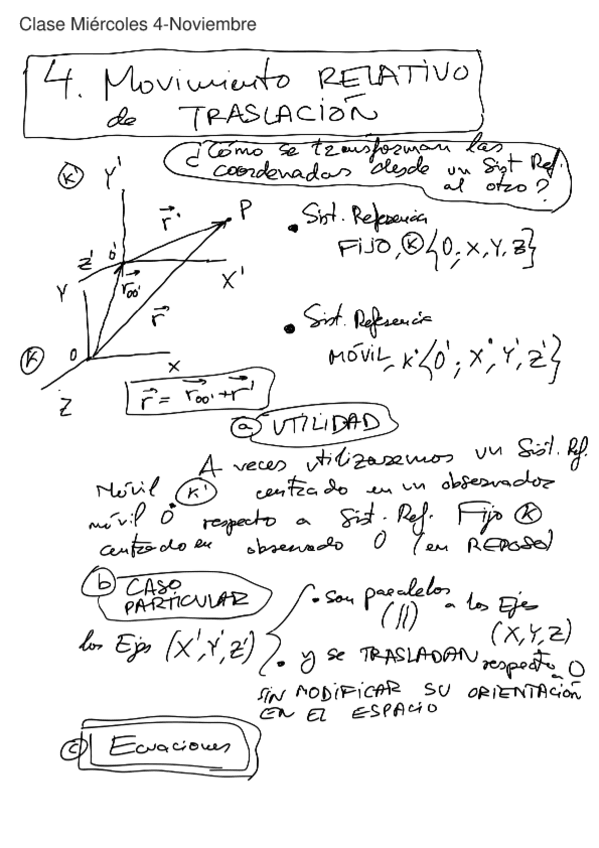 Clase Miércoles 4-Noviembre
4. Movimiento RELATIVO
de TRASLACIÓN
¿Cómo se transforman las
coordenadas desde un Sist Ref.
al otro?
K' Y'
r⃗' P
Z' O' X'
Y r⃗oo'
r⃗
K O X
Z
• Sist. Referencia
FIJO, K {O; X, Y, Z}
• Sist. Referencia
MÓVIL, K' {O'; X', Y', Z'}
r⃗ = r⃗oo' + r⃗'
a) UTILIDAD
A veces utilizaremos un Sist. Ref.
Móvil K' centrado en un observador
móvil O' respecto a Sist. Ref. Fijo K
centrado en observado O (en REPOSO)
b) CASO
PARTICULAR
los Ejes (X', Y', Z')
• son paralelos a los Ejes
(||) (X, Y, Z)
• y se TRASLADAN respecto a O
SIN MODIFICAR SU ORIENTACIÓN
EN EL ESPACIO
c) Ecuaciones